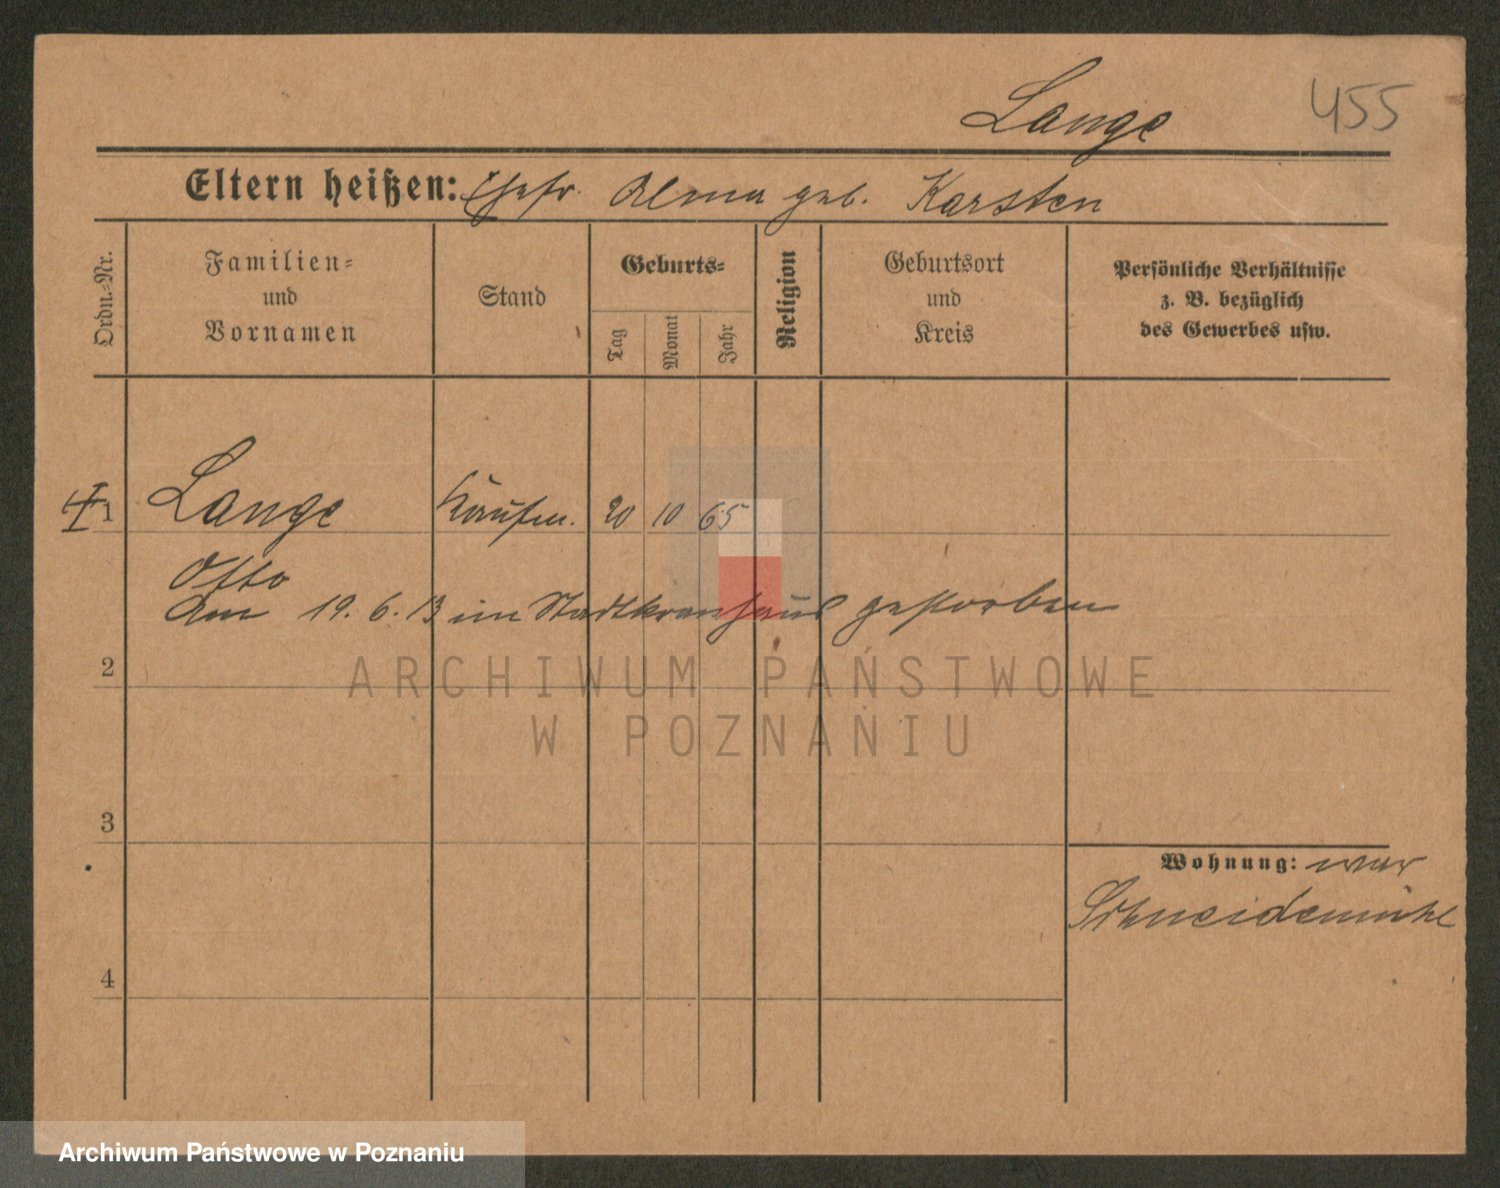 Lange 455
Eltern heißen: Ehefr. Alma geb. Karsten
Ordn.-Nr.
Familien-
und
Vornamen
Stand
Geburts-
Tag
Monat
Jahr
Religion
Geburtsort
und
Kreis
Persönliche Verhältnisse
z. B. bezüglich
des Gewerbes usw.
1 Lange Kaufm. 20 10 65
Otto
am 19. 6. 13 im Stadtkrankhaus gestorben
2
ARCHIWUM PAŃSTWOWE
W POZNANIU
3
Wohnung: war
Schneidemühl
4
Archiwum Państwowe w Poznaniu